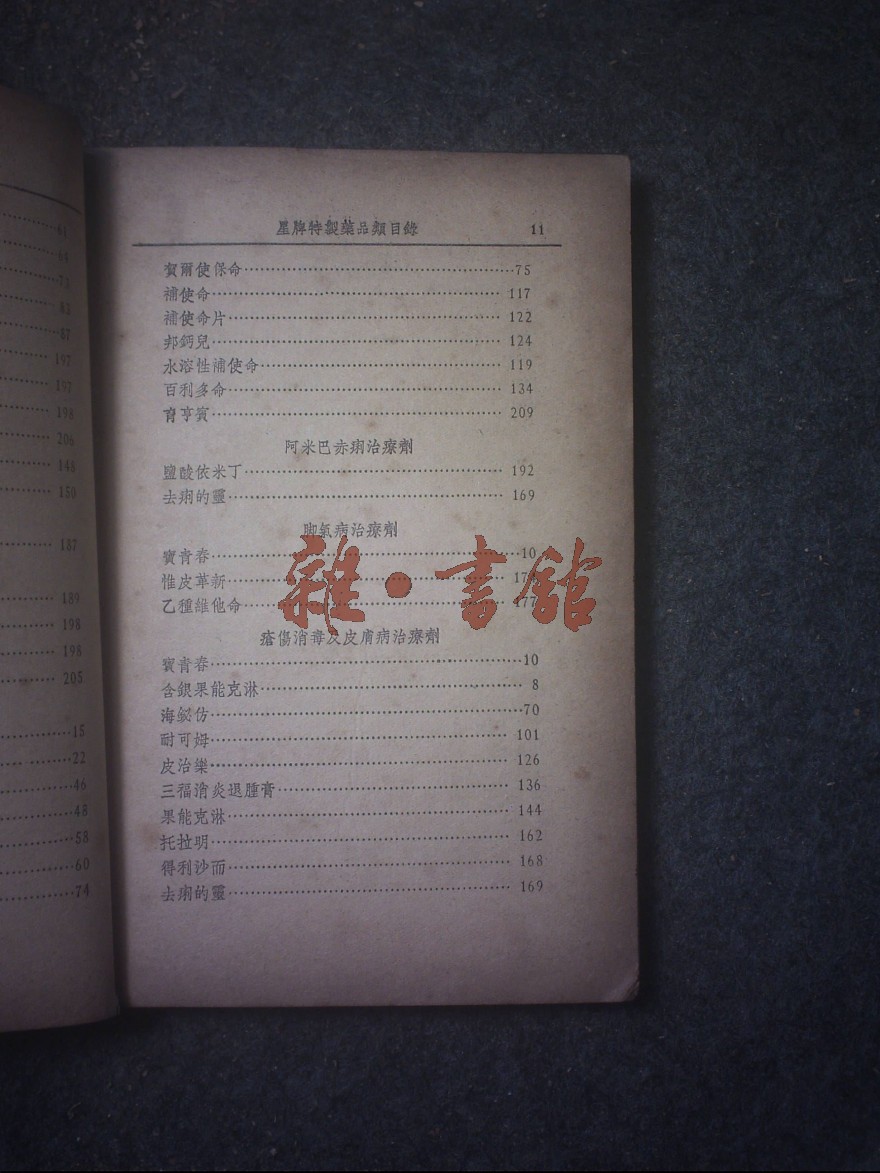 61
64
73
83
87
197
197
198
206
148
150
187
189
198
198
205
15
22
46
48
58
60
74
星牌特製藥品類目錄 11
賀爾使保命 75
補使命 117
補使命片 122
邦鈣兒 124
水溶性補使命 119
百利多命 134
育亨賓 209
阿米巴赤痢治療劑
鹽酸依米丁 192
去痢的靈 169
脚氣病治療劑
寶青春 10
惟皮革新
乙種維他命 177
瘡傷消毒及皮膚病治療劑
寶青春 10
含銀果能克淋 8
海鉍仿 70
耐可姆 101
皮治樂 126
三福消炎退腫膏 136
果能克淋 144
托拉明 162
得利沙而 168
去痢的靈 169
雜·書館